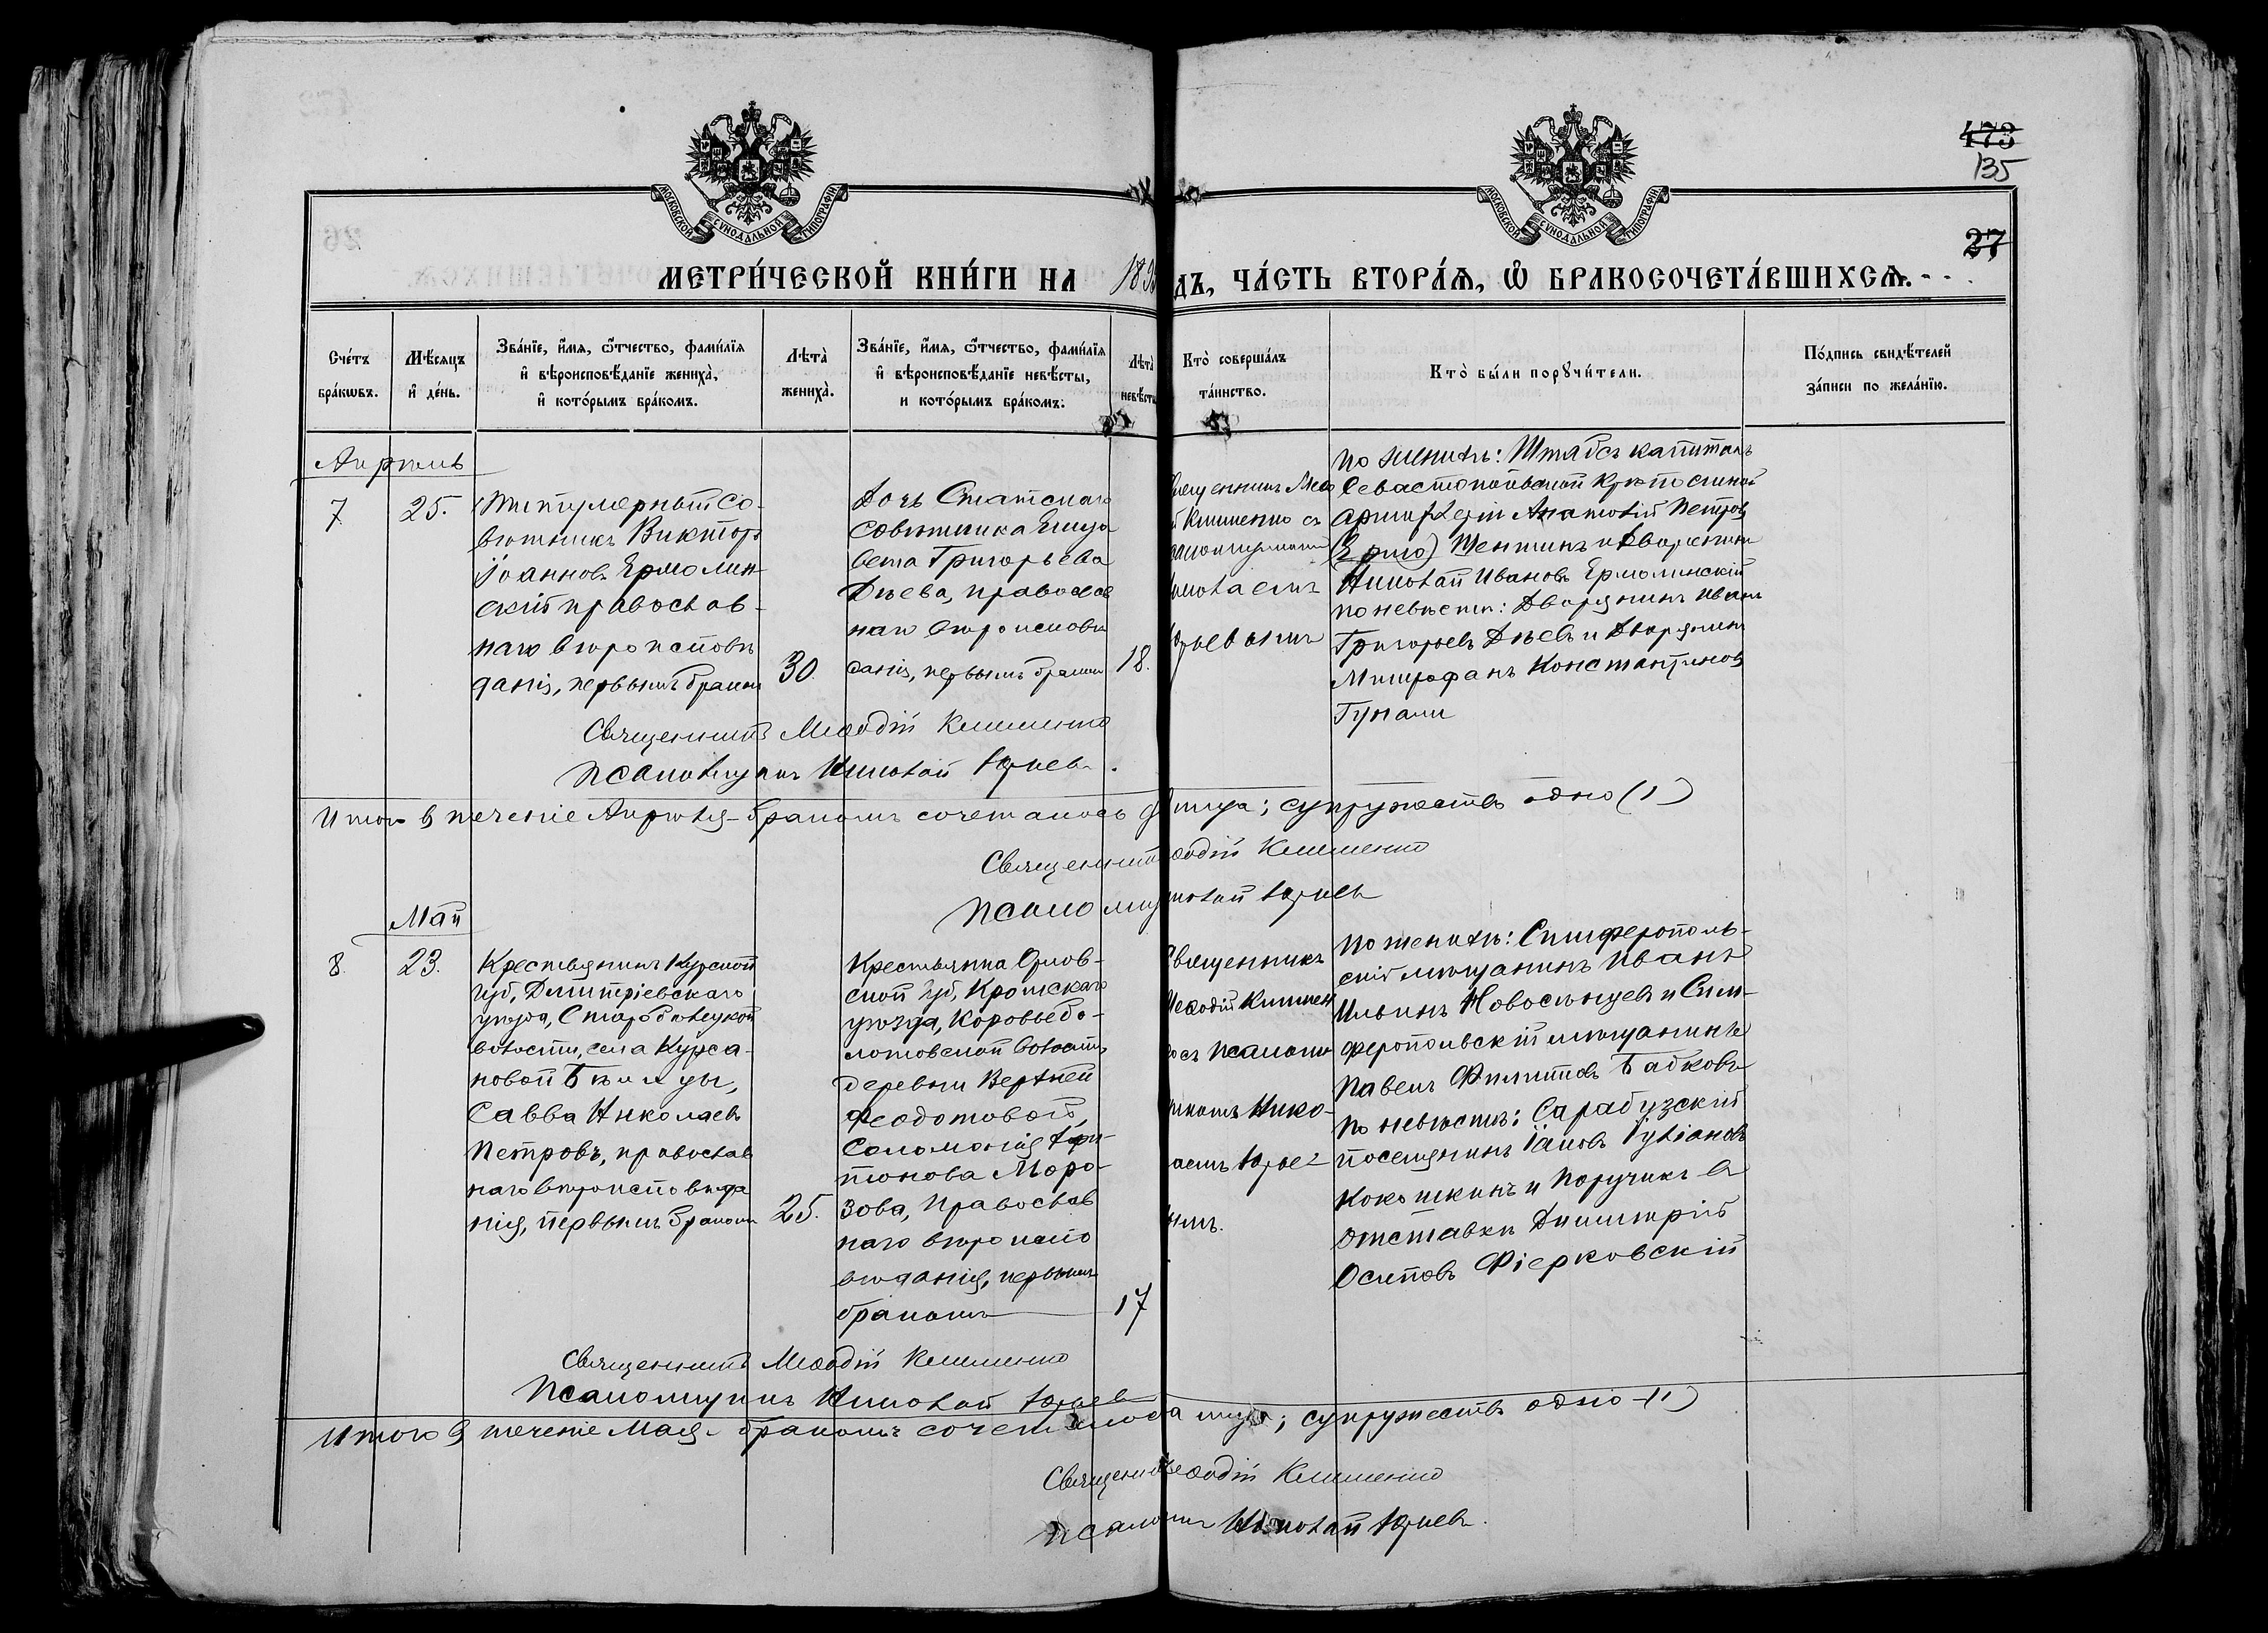 473
135
27
МОСКОВСКОЙ СУНОДАЛЬНОЙ ТИПОГРАФІИ
МОСКОВСКОЙ СУНОДАЛЬНОЙ ТИПОГРАФІИ
МЕТРИ́ЧЕСКОЙ КНИ́ГИ НА 18
ДЪ, ЧА́СТЬ ВТОРА́Ѧ, Ѡ҆ БРАКОСОЧЕТА́ВШИХСѦ.
Сче́тъ
бра́кѡвъ.
Мѣ́сяцъ
и҆ де́нь.
Зва́нїе, и҆́мя, ѻ҆́тчество, фами́лїя
и҆ вѣроисповѣ́данїе жениха̀,
и҆ кото́рымъ бра́комъ.
Лѣта̀
жениха̀.
Зва́нїе, и҆́мя, ѻ҆́тчество, фами́лїя
и҆ вѣроисповѣ́данїе невѣ́сты,
и кото́рымъ бра́комъ.
Лѣта̀
невѣ́сты
Кто̀ соверша́лъ
та́инство.
Кто̀ бы́ли порꙋчи́тели.
По́дпись свидѣ́телей
за́писи по жела́нїю.
Апрѣль
7
25.
Титулярный Со-
вѣтникъ Викторъ
Іоанновъ Ермолин-
скій православ-
наго вѣроисповѣ
данія, первымъ бракомъ
30.
Дочь Статскаго
Совѣтника Елиза
вета Григорьева
Дѣева, православ
наго вѣроисповѣ
данія, первымъ бракомъ
18.
Священникъ Меѳо
й Клименко съ
псаломщикомъ
Николаемъ
Юрьевымъ
По женихѣ: Штабсъ капитанъ
Севастопольской крѣпостной
артиллеріи Анатолій Петровъ
Шеншинъ и Дворянинъ
Николай Ивановъ Ермолинскій
по невѣстѣ: Дворянинъ Иванъ
Григорьевъ Дѣевъ и Дворянинъ
Митрофанъ Константиновъ
Гунали
Священникъ Меѳодій Клименко
Псаломщикъ Николай Юрьевъ.
Итого въ теченіе Апрѣля бракомъ сочеталось лица; супружествъ одно (1)
Священникъ Меѳодій Клименко
Псаломщ Николай Юрьевъ
Май
8.
23.
Крестьянинъ Курской
губ., Дмитріевскаго
уѣзда, Старобѣлицкой
волости, села Курса-
новой Бѣлицы,
Савва Николаевъ
Петровъ, православ
наго вѣроисповѣда
нія, первымъ бракомъ
25.
Крестьянка Орлов-
ской губ., Кромскаго
уѣзда, Коровьебо-
лотовской волости
деревни Верхней
Феодотовой,
Соломонія Хри-
тонова Моро-
зова, православ
наго вѣроиспо
вѣданія, первымъ
бракомъ
17
Священникъ
Меѳодій Климен
ко съ псалом
щикомъ Нико-
лаемъ Юрье-
вымъ.
По женихѣ: Симферополь-
скій мѣщанинъ Иванъ
Ильинъ Новосельцевъ и Сим-
феропольскій мѣщанинъ
Павелъ Филиповъ Бабковъ
По невѣстѣ: Сарабузскій
поселянинъ Іаковъ Іуліановъ
Кокошкинъ и Поручикъ въ
отставкѣ Димитрій
Осиповъ Фіерковскій
Священникъ Меѳодій Клименко
Псаломщикъ Николай Юрьевъ
Итого въ теченіе Мая бракомъ сочеталось два лица; супружествъ одно (1)
Священникъ Меѳодій Клименко
Псаломщ Николай Юрьевъ.